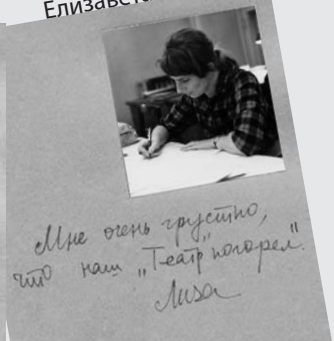 Мне очень грустно,
что наш „Театр погорел".
Лиза